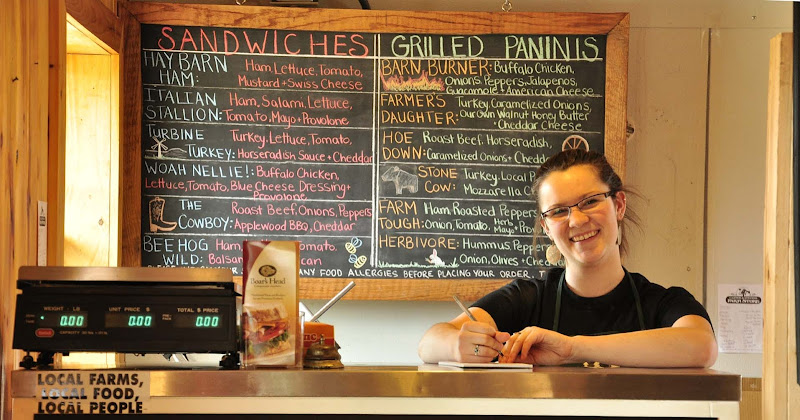 SANDWICHES
HAY BARN HAM: Ham, Lettuce, Tomato,
Mustard + Swiss Cheese
ITALIAN STALLION: Ham, Salami, Lettuce,
Tomato, Mayo + Provolone
TURBINE TURKEY: Turkey, Lettuce, Tomato,
Horseradish Sauce + Cheddar
WOAH NELLIE!: Buffalo Chicken,
Lettuce, Tomato, Blue Cheese Dressing +
Provolone
THE COWBOY: Roast Beef, Onions, Peppers
Applewood BBQ, Cheddar
BEE HOG WILD: Ham
Tomato,
Balsam
GRILLED PANINIS
BARN BURNER: Buffalo Chicken,
Onions, Peppers, Jalapenos,
Guacamole + American Cheese
FARMERS DAUGHTER: Turkey, Caramelized Onions,
Our own Walnut Honey Butter
+ Cheddar Cheese
HOE DOWN: Roast Beef, Horseradish,
Caramelized Onions + Cheddar
STONE COW: Turkey, Local
Mozzarella
FARM TOUGH: Ham Roasted Peppers
Onion, Tomato, Herb Mayo +
HERBIVORE: Hummus, Peppers
Onion, Olives +
ANY FOOD ALLERGIES BEFORE PLACING YOUR ORDER,
WEIGHT LB
UNIT PRICE $
TOTAL $ PRICE
0.00 0.00 0.00
Boar's Head
LOCAL FARMS,
LOCAL FOOD,
LOCAL PEOPLE